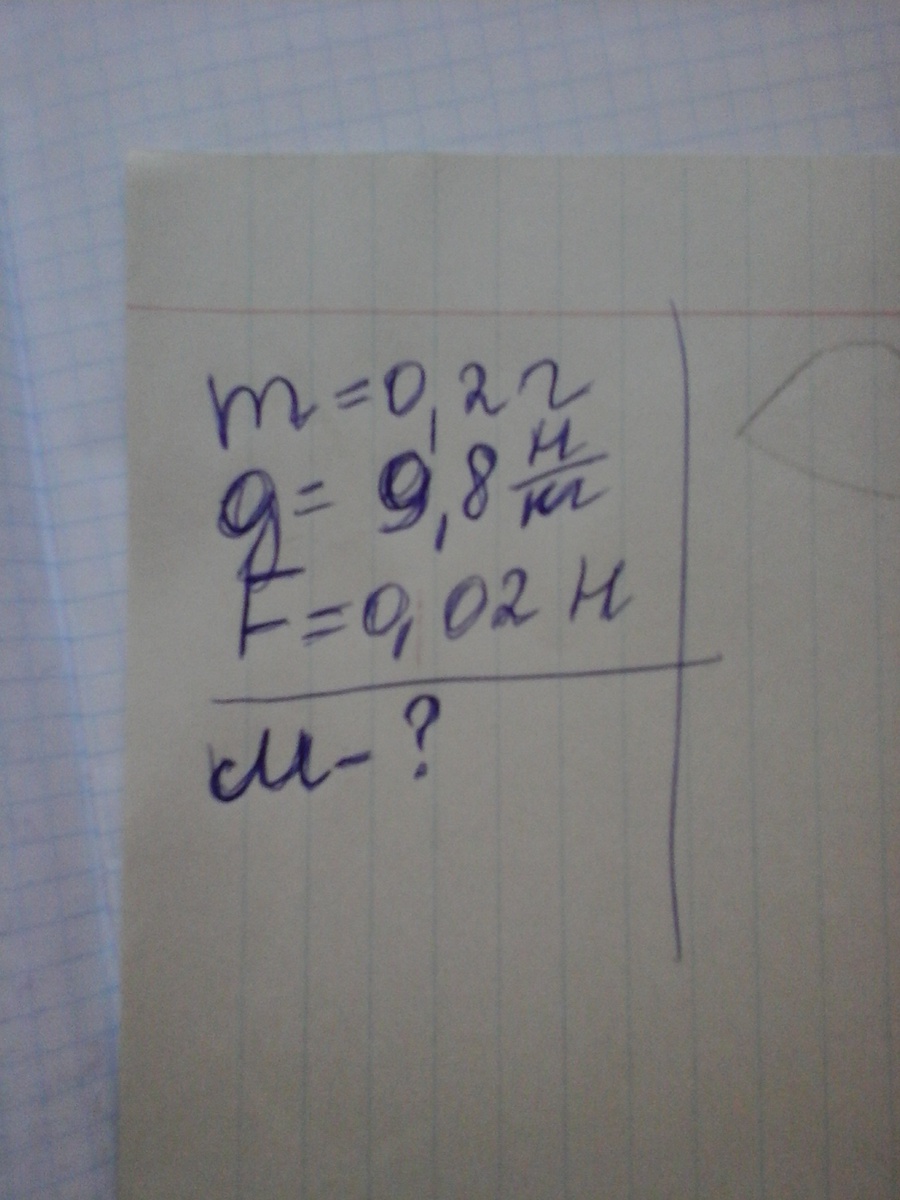 m = 0,2 г
g = 9,8 Н/кг
F = 0,02 Н
μ - ?